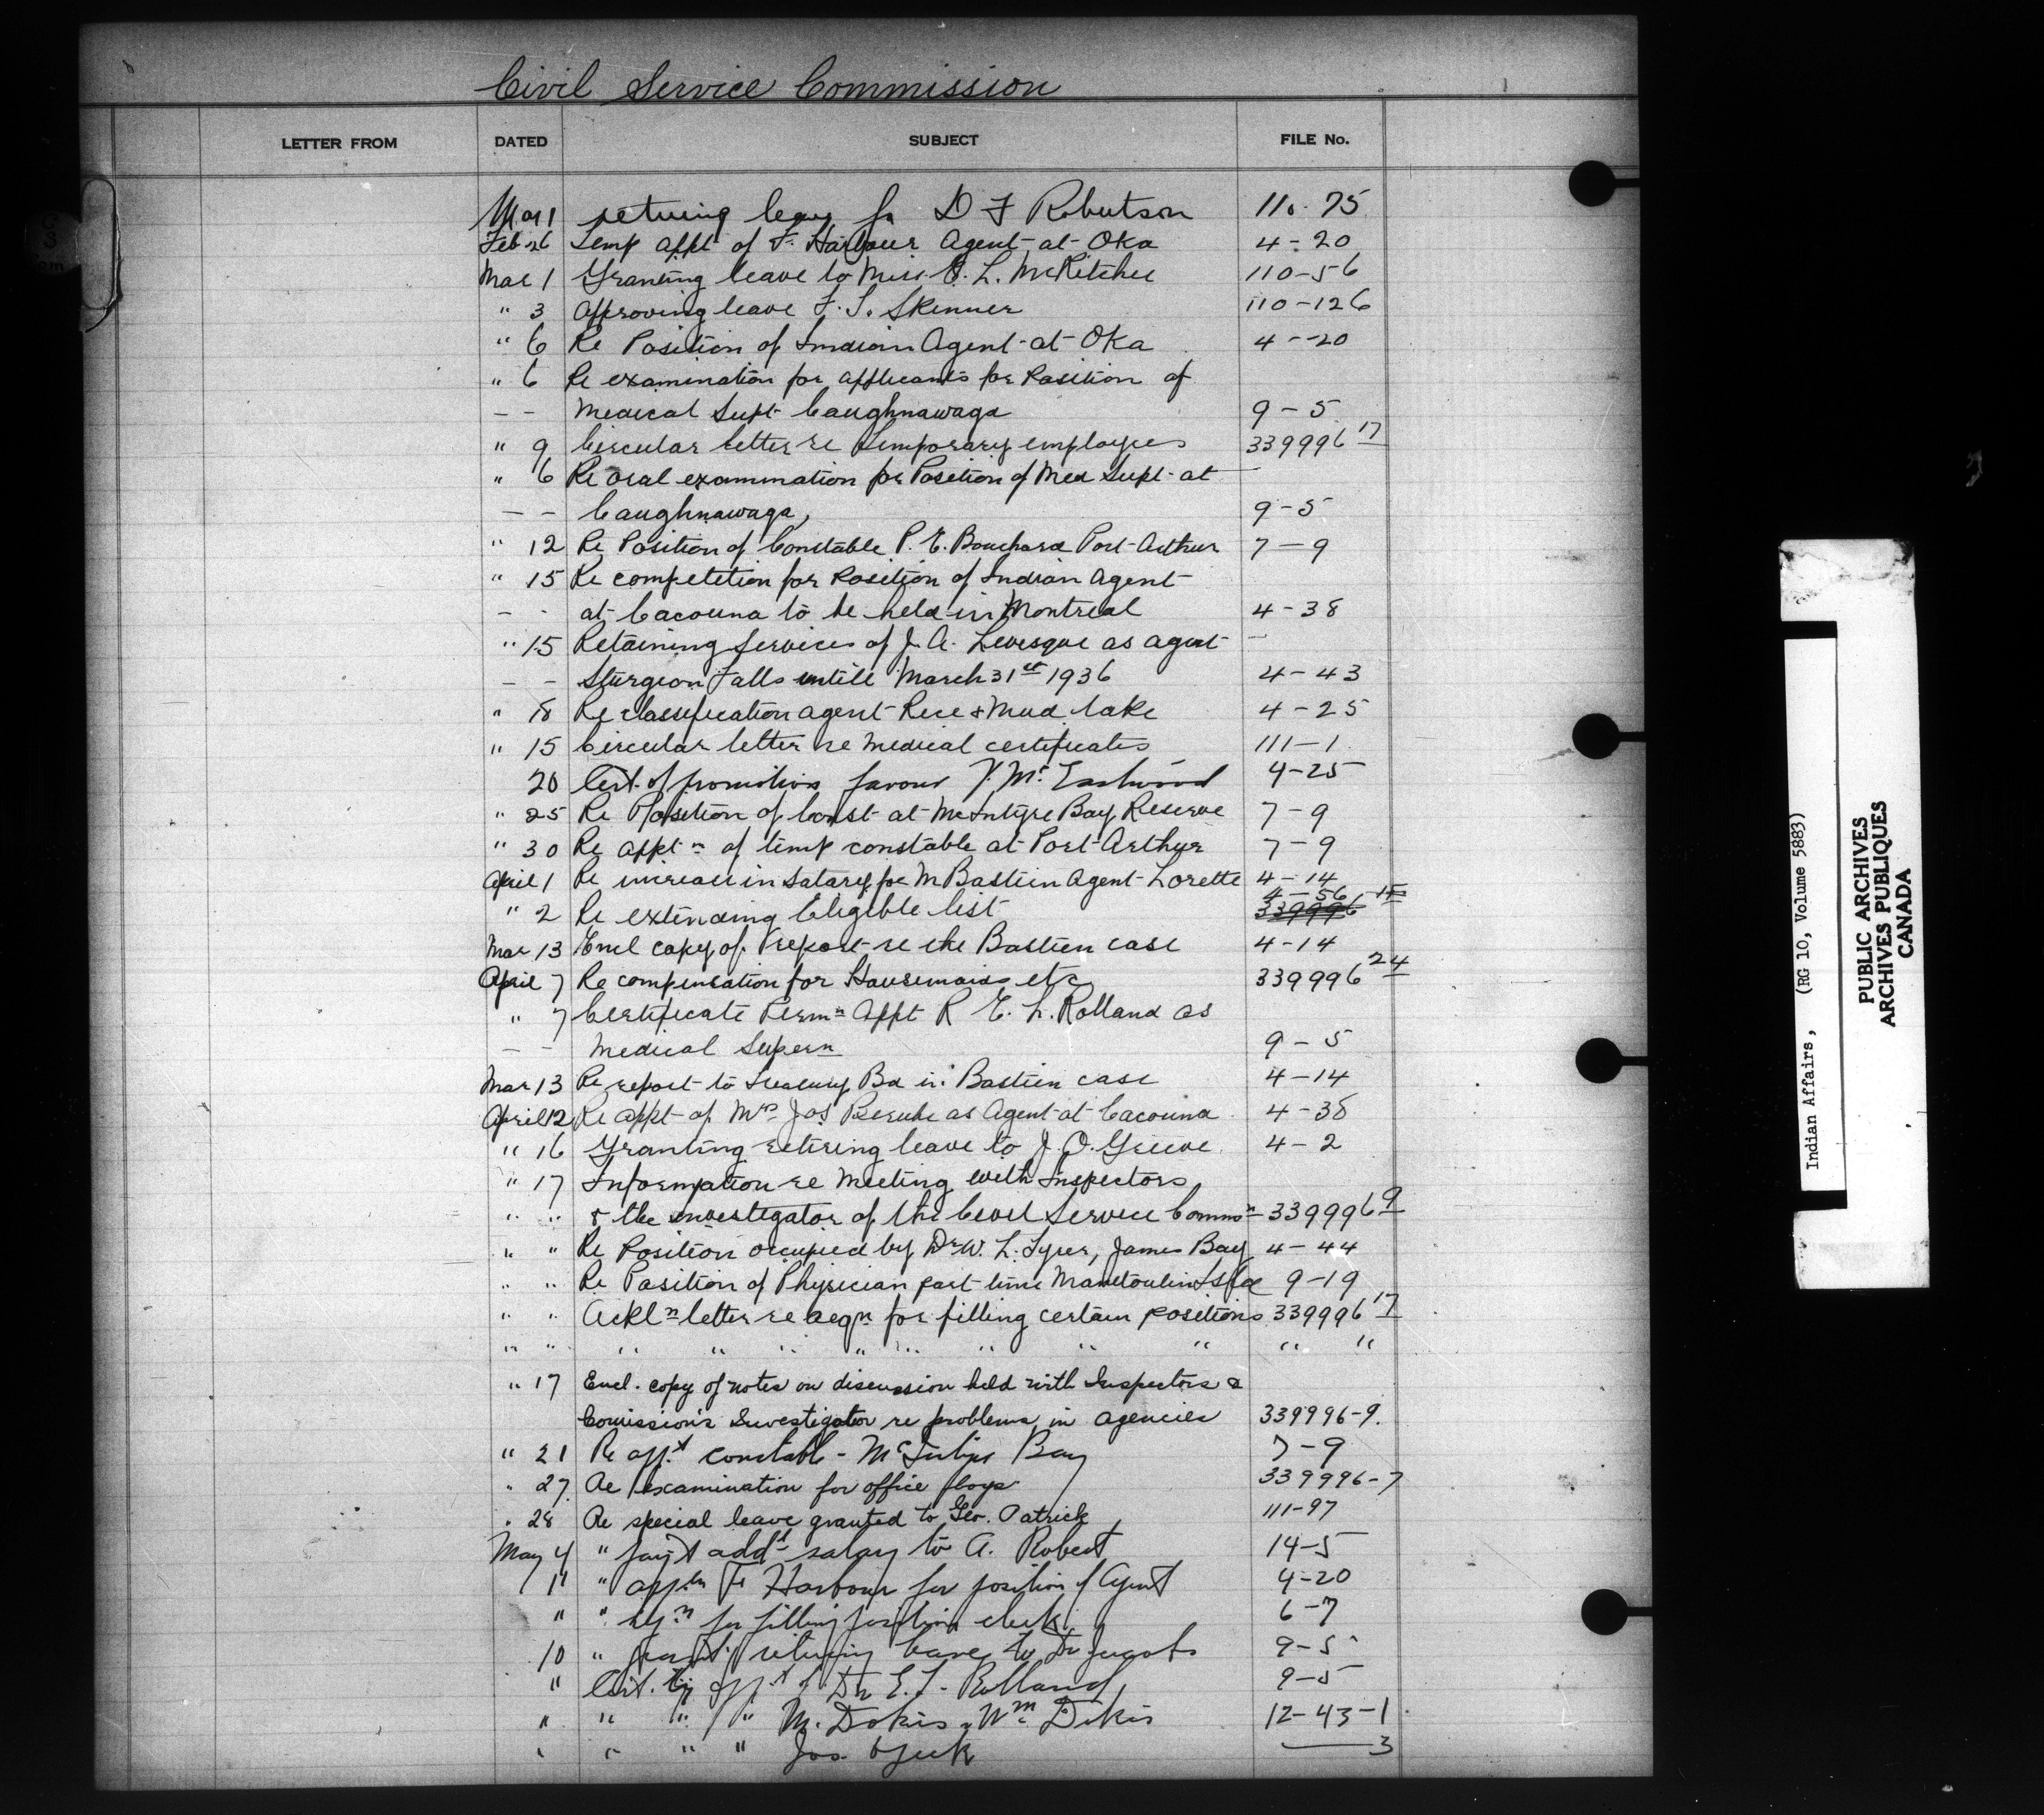 Civil Service Commission
LETTER FROM DATED SUBJECT FILE No.
Mar 1 retiring leave fr D F Robertson 110-75
Feb 26 Temp appt of F. Harbour Agent at Oka 4-20
Mar 1 Granting leave to Miss L. McKitchee 110-56
" 3 Approving leave F. T. Skinner 110-126
" 6 Re Position of Indian Agent at Oka 4--20
" 6 Re examination for applicants for Position of
- - Medical Supt Caughnawaga 9-5
" 9 Circular letter re Temporary employees 339996 17
" 6 Re Oral examination for Position of Med Supt at
- - Caughnawaga, 9-5
" 12 Re Position of Constable P. E. Bouchard Port Arthur 7-9
" 15 Re competition for Position of Indian Agent
- - at Cacouna to be held in Montreal 4-38
" 15 Retaining Services of J. A. Levesque as agent
- - Sturgeon Falls untill March 31st 1936 4-43
" 18 Re classification agent Rice & Mud lake 4-25
" 15 Circular letter re medical certificates 111-1
20 Cert. of promotion favour V. Mc Eastwood 4-25
" 25 Re Position of Const at McIntyre Bay Reserve 7-9
" 30 Re appt n of temp constable at Port Arthur 7-9
April 1 Re increase in Salary for M Bastien Agent Lorette 4-14
" 2 Re extending Eligible list 4-56 339996 15
Mar 13 Encl copy of report re the Bastien case 4-14
April 7 Re compensation for Housemaids etc 339996 24
" 7 Certificate Perm n Appt R E. L. Rolland as
- - Medical Supern 9-5
Mar 13 Re report to Treasury Bd in Bastien case 4-14
April 12 Re appt of Mrs Jos Berube as Agent at Cacouna 4-38
" 16 Granting retiring leave to J. O. Greeve 4-2
" 17 Information re Meeting with Inspectors
" " & the investigator of the Civil Service Commn 339996 9
" " Re Position occupied by Dr W. L. Tyrer, James Bay 4-44
" " Re Position of Physician part time Manitoulin 9-19
" " Ackl n letter re reqn for filling certain positions 339996 17
" " " " " " " " " " " "
" 17 Encl. copy of notes on discussion held with Inspectors &
Comission's Investigator re problems in agencies 339996-9.
" 21 Re app.t constable - McIntyre Bay 7-9
" 27 Re examination for office boys 339996-7
" 28 Re special leave granted to Geo. Patrick 111-97
May 4 " pay't add'l salary to A. Robert 14-5
11 " app.tn F. Harbour for position of Agent 4-20
" " reqn for filling position clerk 6-7
10 " retiring leave to Dr Jacobs 9-5
" Cert. app.t of Dr E. L. Rolland 9-5
" " " " M. Dokis Wm Dokis 12-43-1
" " " " Jos 3
Indian Affairs, (RG 10, Volume 5883)
PUBLIC ARCHIVES
ARCHIVES PUBLIQUES
CANADA